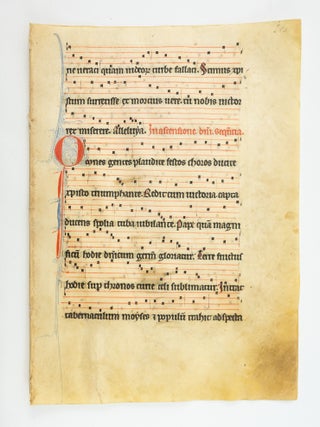 rie veraci quam iudeor̄ turbe fallaci. Scimus xp̄i
stum surrexisse ex mortuis vere. tu nobis victor
rex miserere. Alleluya. In ascensione dn̄i. seq̄ntia.
Omnes gentes plaudite festos choros ducite
xp̄isto triumphante. Redit cum victoria capta
ducens spolia turba iubilante. Papx quam magni
ficū hodie dn̄icum genus gloriatur. Terre
hodie sup̄ thronos curie celi sublimatur. Intrat
tabernaculum moyses et populū trahit ad specta